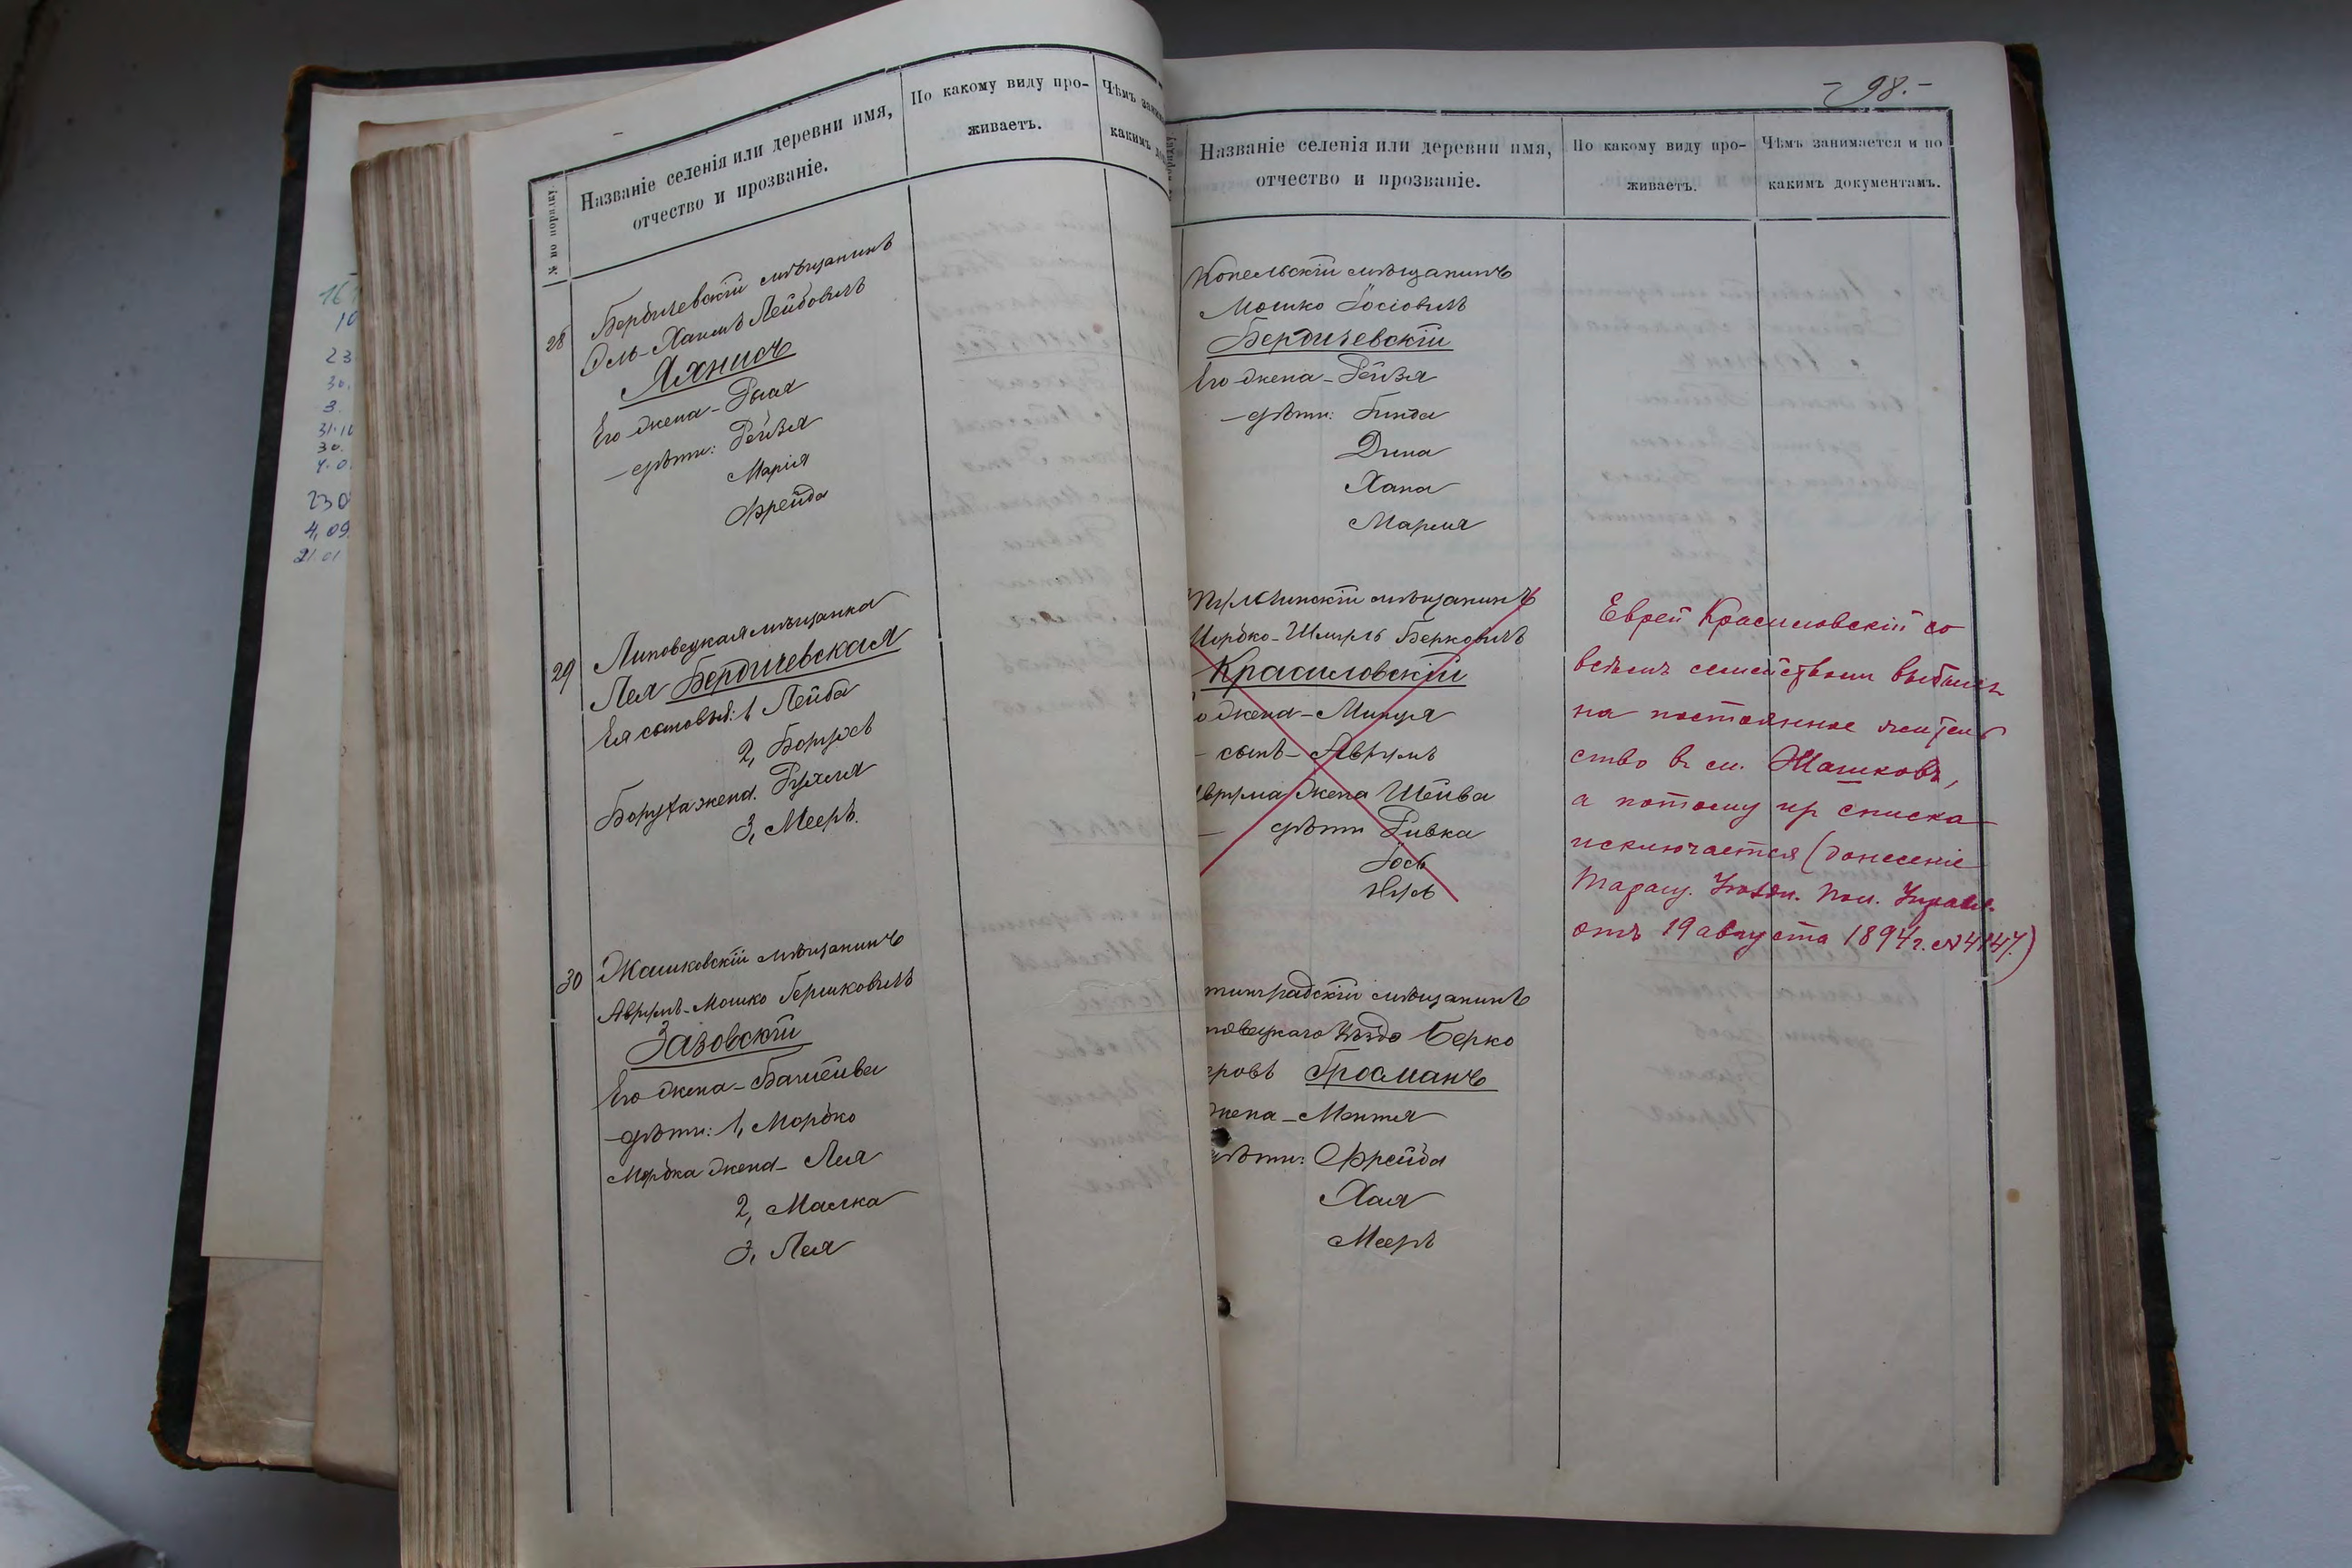 161
10
23
30.
3.
31.10
30.
4.0
230
4,09.
21.01
№ по порядку
Названіе селенія или деревни имя,
отчество и прозваніе.
По какому виду про-
живаетъ.
Чѣмъ
какимъ
28
Бердичевскій мѣщанинъ
Эль-Хаимъ Лейбовичъ
Яхнисъ
Его жена-
-дѣти: Рейзя
Марія
Фрейда
29
Липовецкая мѣщанка
Лея Бердичевская
Ея сыновья: 1 Лейба
2, Борухъ
Боруха жена. Рухля
3, Мееръ.
30
Жашковскій мѣщанинъ
Аврумъ-Мошко Гершковичъ
Зазовскій
Его жена-Башейва
-дѣти: 1, Мордко
Мордка жена- Лея
2, Малка
3, Лея
-98.-
Названіе селенія или деревни имя,
отчество и прозваніе.
По какому виду про-
живаетъ.
Чѣмъ занимается и по
какимъ документамъ.
Копельскій мѣщанинъ
Мошко Іосіовичъ
Бердичевскій
Его жена-Рейзя
-дѣти: Гинда
Дина
Хана
Маріия
мѣщанинъ
Мордко-Шмуль Берковичъ
Красиловскій
жена-Минця
- сынъ-Аврумъ
Аврума жена Шейва
- дѣти Ривка
Іось
Нусь
Еврей Красиловскій со
всѣмъ семействомъ выбылъ
на постоянное житель
ство въ м. Жашковъ,
а потому изъ списка
исключается (донесеніе
Таращ. Уѣздн. Пол. Управл.
отъ 19 августа 1894 г. №4147.)
тинградскій мѣщанинъ
повецкаго уѣзда Берко
ровъ Гросманъ
жена-Ментя
дѣти: Фрейда
Хая
Мееръ